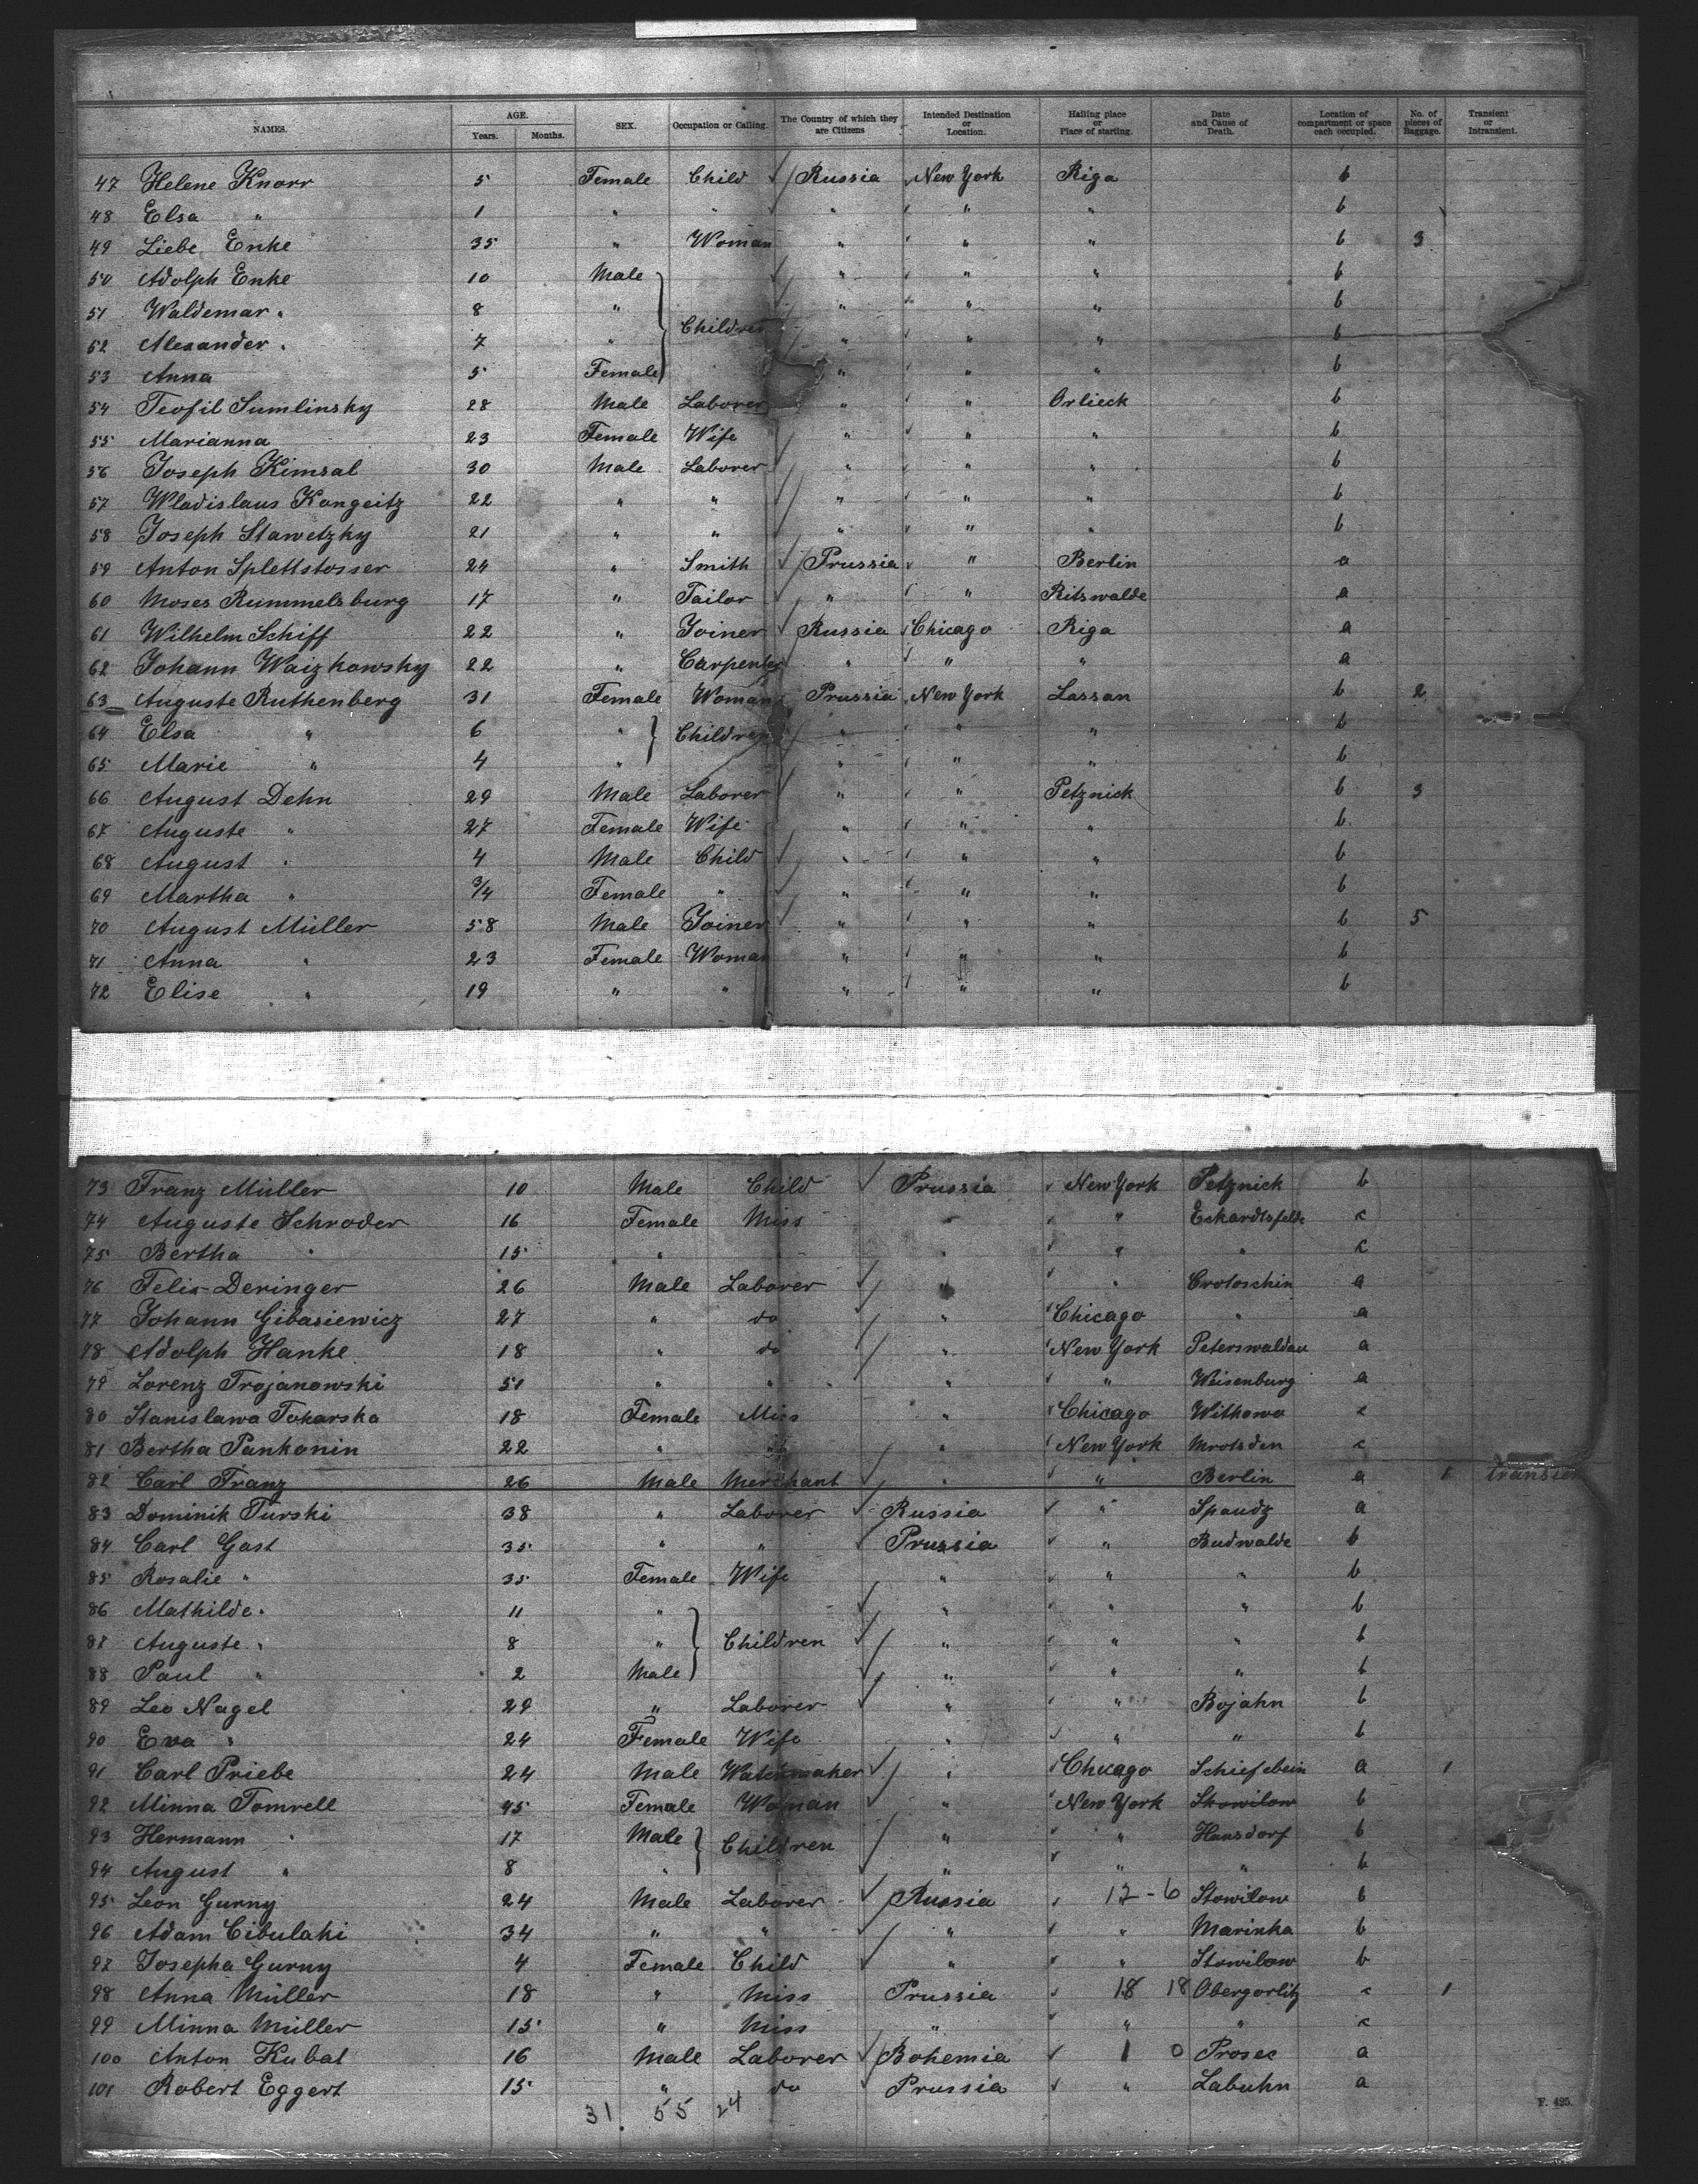 NAMES. AGE. Years. Months. SEX. Occupation or Calling. The Country of which they are Citizens Intended Destination or Location. Hailing place or Place of starting. Date and Cause of Death. Location of compartment or space each occupied. No. of pieces of Baggage. Transient or Intransient.
47 Helene Knorr 5 Female Child Russia New York Riga b
48 Elsa " 1 " " " " " b
49 Liebe Enke 35 " Woman " " " b 3
50 Adolph Enke 10 Male " " " b
51 Waldemar " 8 " " " " b
Children
52 Alexander " 7 " " " " b
53 Anna 5 Female " " " b
54 Teofil Sumlinsky 28 Male Laborer " " Orlieck b
55 Marianna 23 Female Wife " " " b
56 Joseph Kimsal 30 Male Laborer " " " b
57 Wladislaus Kongeitz 22 " " " " " b
58 Joseph Stawetzky 21 " " " " " b
59 Anton Splettstosser 24 " Smith Prussia " Berlin a
60 Moses Rummelsburg 17 " Tailor " " Ritswalde a
61 Wilhelm Schiff 22 " Joiner Russia Chicago Riga a
62 Johann Waizkowsky 22 " Carpenter " " " a
63 Auguste Ruthenberg 31 Female Woman Prussia New York Lassan b 2
64 Elsa " 6 " Children " " " b
65 Marie " 4 " " " " b
66 August Dehn 29 Male Laborer " " Petznick b 3
67 Auguste " 27 Female Wife " " " b
68 August " 4 Male Child " " " b
69 Martha " 3/4 Female " " " " b
70 August Müller 58 Male Joiner " " " b 5
71 Anna " 23 Female Woman " " " b
72 Elise " 19 " " " " " b
73 Franz Müller 10 Male Child Prussia New York Petznick b
74 Auguste Schroder 16 Female Miss " " Eskardtsfelde c
75 Bertha " 15 " " " " " c
76 Felix Deringer 26 Male Laborer " " Crotoschin a
77 Johann Gibasiewicz 27 " do " Chicago " a
78 Adolph Hanke 18 " do " New York Peterswaldau a
79 Lorenz Trojanowski 51 " " " " Weisenburg a
80 Stanislawa Tokarska 18 Female Miss " Chicago Withowo c
81 Bertha Pankonin 22 " " " New York Mrotsden c
82 Carl Franz 26 Male Merchant " " Berlin a 1 transien
83 Dominik Turski 38 " Laborer Russia " Spaudz a
84 Carl Gast 35 " " Prussia " Budwalde b
85 Rosalie " 35 Female Wife " " " b
86 Mathilde " 11 " " " " b
87 Auguste " 8 " Children " " " b
88 Paul " 2 Male " " " b
89 Leo Nagel 29 " Laborer " " Bojahn b
90 Eva " 24 Female Wife " " " b
91 Carl Priebe 24 Male Watchmaker " Chicago Schiefelbein a 1
92 Minna Tomrell 45 Female Woman " New York Skowilow b
93 Hermann " 17 Male Children " " Hansdorf b
94 August " 8 " " " " b
95 Leon Gurny 24 Male Laborer Russia 12-6 Stowilow b
96 Adam Cibulaki 34 " " " " Marinka b
97 Josepha Gurny 4 Female Child " " Stowilow b
98 Anna Müller 18 " Miss Prussia 18 18 Obergorlitz c 1
99 Minna Müller 15 " Miss " " " c
100 Anton Kubat 16 Male Laborer Bohemia 1 0 Prosec a
101 Robert Eggert 15 " do Prussia " Labuhn a
31. 55 24
F. 495.